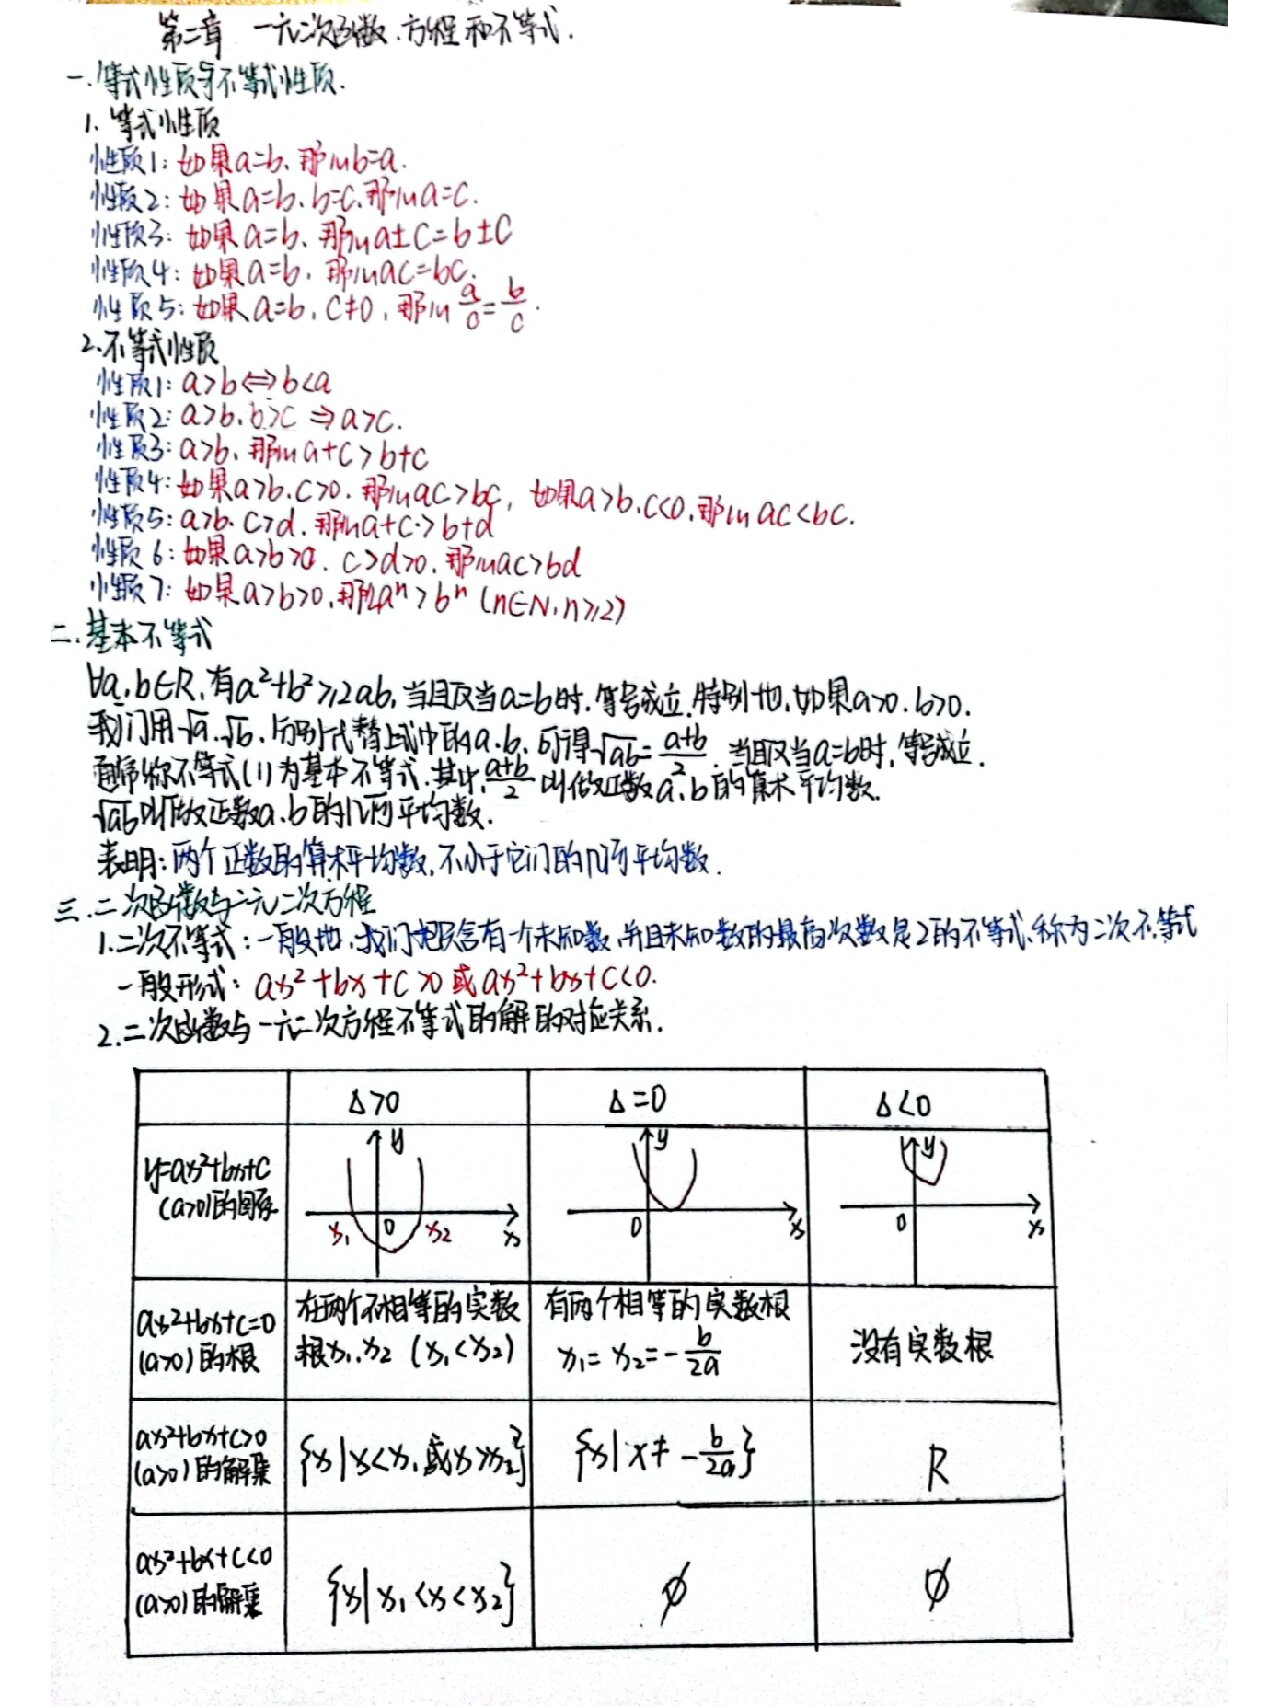 第二章 一元二次函数、方程和不等式.
一.等式性质与不等式性质.
1. 等式性质
性质1: 如果a=b、那么b=a.
性质2: 如果a=b、b=c,那么a=c.
性质3: 如果a=b、那么a±c=b±c
性质4: 如果a=b,那么ac=bc.
性质5: 如果a=b,c≠0,那么 a/c = b/c.
2.不等式性质
性质1: a>b⇔b<a
性质2: a>b、b>c ⇒a>c.
性质3: a>b、那么a+c>b+c
性质4: 如果a>b、c>0、那么ac>bc, 如果a>b、c<0、那么ac<bc.
性质5: a>b、c>d、那么a+c>b+d
性质6: 如果a>b>0、c>d>0、那么ac>bd
性质7: 如果a>b>0、那么aⁿ>bⁿ (n∈N,n≥2)
二.基本不等式
∀a,b∈R,有a²+b²≥2ab,当且仅当a=b时,等号成立.特别地,如果a>0、b>0、
我们用√a、√b、分别代替上式中的a、b、可得√ab=(a+b)/2. 当且仅当a=b时,等号成立.
通常称不等式(1)为基本不等式.其中,(a+b)/2 叫做正数a、b的算术平均数.
√ab叫做正数a、b的几何平均数.
表明:两个正数的算术平均数,不小于它们的几何平均数.
三.二次函数与一元二次方程
1.二次不等式:一般地,我们把只含有一个未知数,并且未知数的最高次数是2的不等式、称为二次不等式
一般形式: ax²+bx+c>0 或 ax²+bx+c<0.
2.二次函数与一元二次方程不等式的解的对应关系.
Δ>0 Δ=0 Δ<0
y=ax²+bx+c
(a>0)的图像
y y y
x₁ 0 x₂ x 0 x 0 x
ax²+bx+c=0 在两个不相等的实数 有两个相等的实数根
(a>0)的根 根x₁、x₂ (x₁<x₂) x₁=x₂=-b/2a 没有实数根
ax²+bx+c>0
(a>0)的解集 {x|x<x₁或x>x₂} {x|x≠-b/2a} R
ax²+bx+c<0
(a>0)的解集 {x|x₁<x<x₂} ∅ ∅